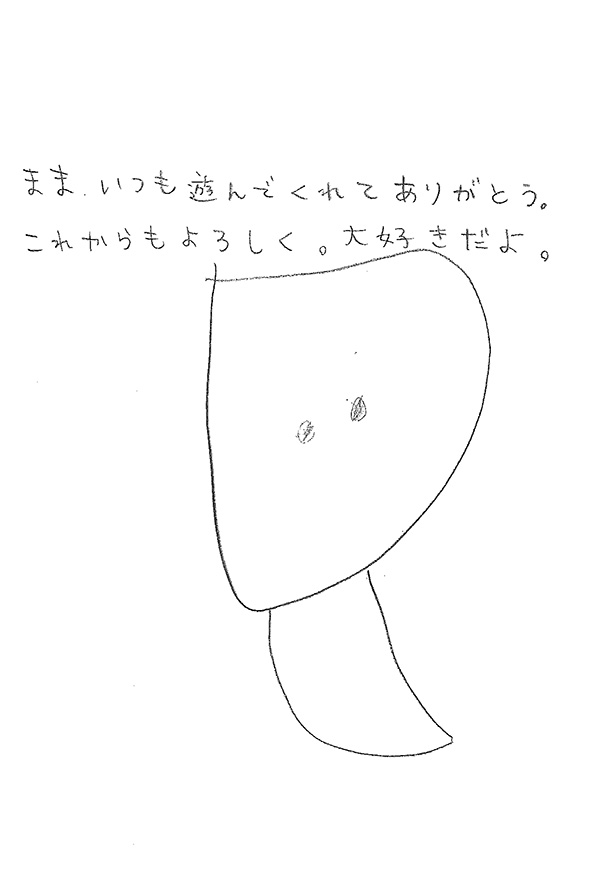 まま、いつも遊んでくれてありがとう。
これからもよろしく。大好きだよ。